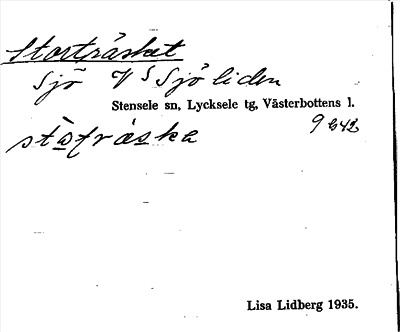 Storträsket
Sjö V S Sjöliden
Stensele sn, Lycksele tg, Västerbottens l.
9 G42
Lisa Lidberg 1935.